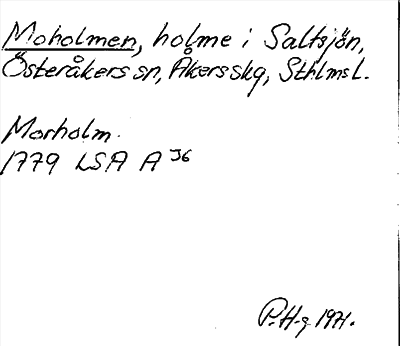 Moholmen, holme i Saltsjön,
Österåkers sn, Åkers skg, Sthlms l.
Morholm.
1779 LSA A J6
P.H-g 1971.